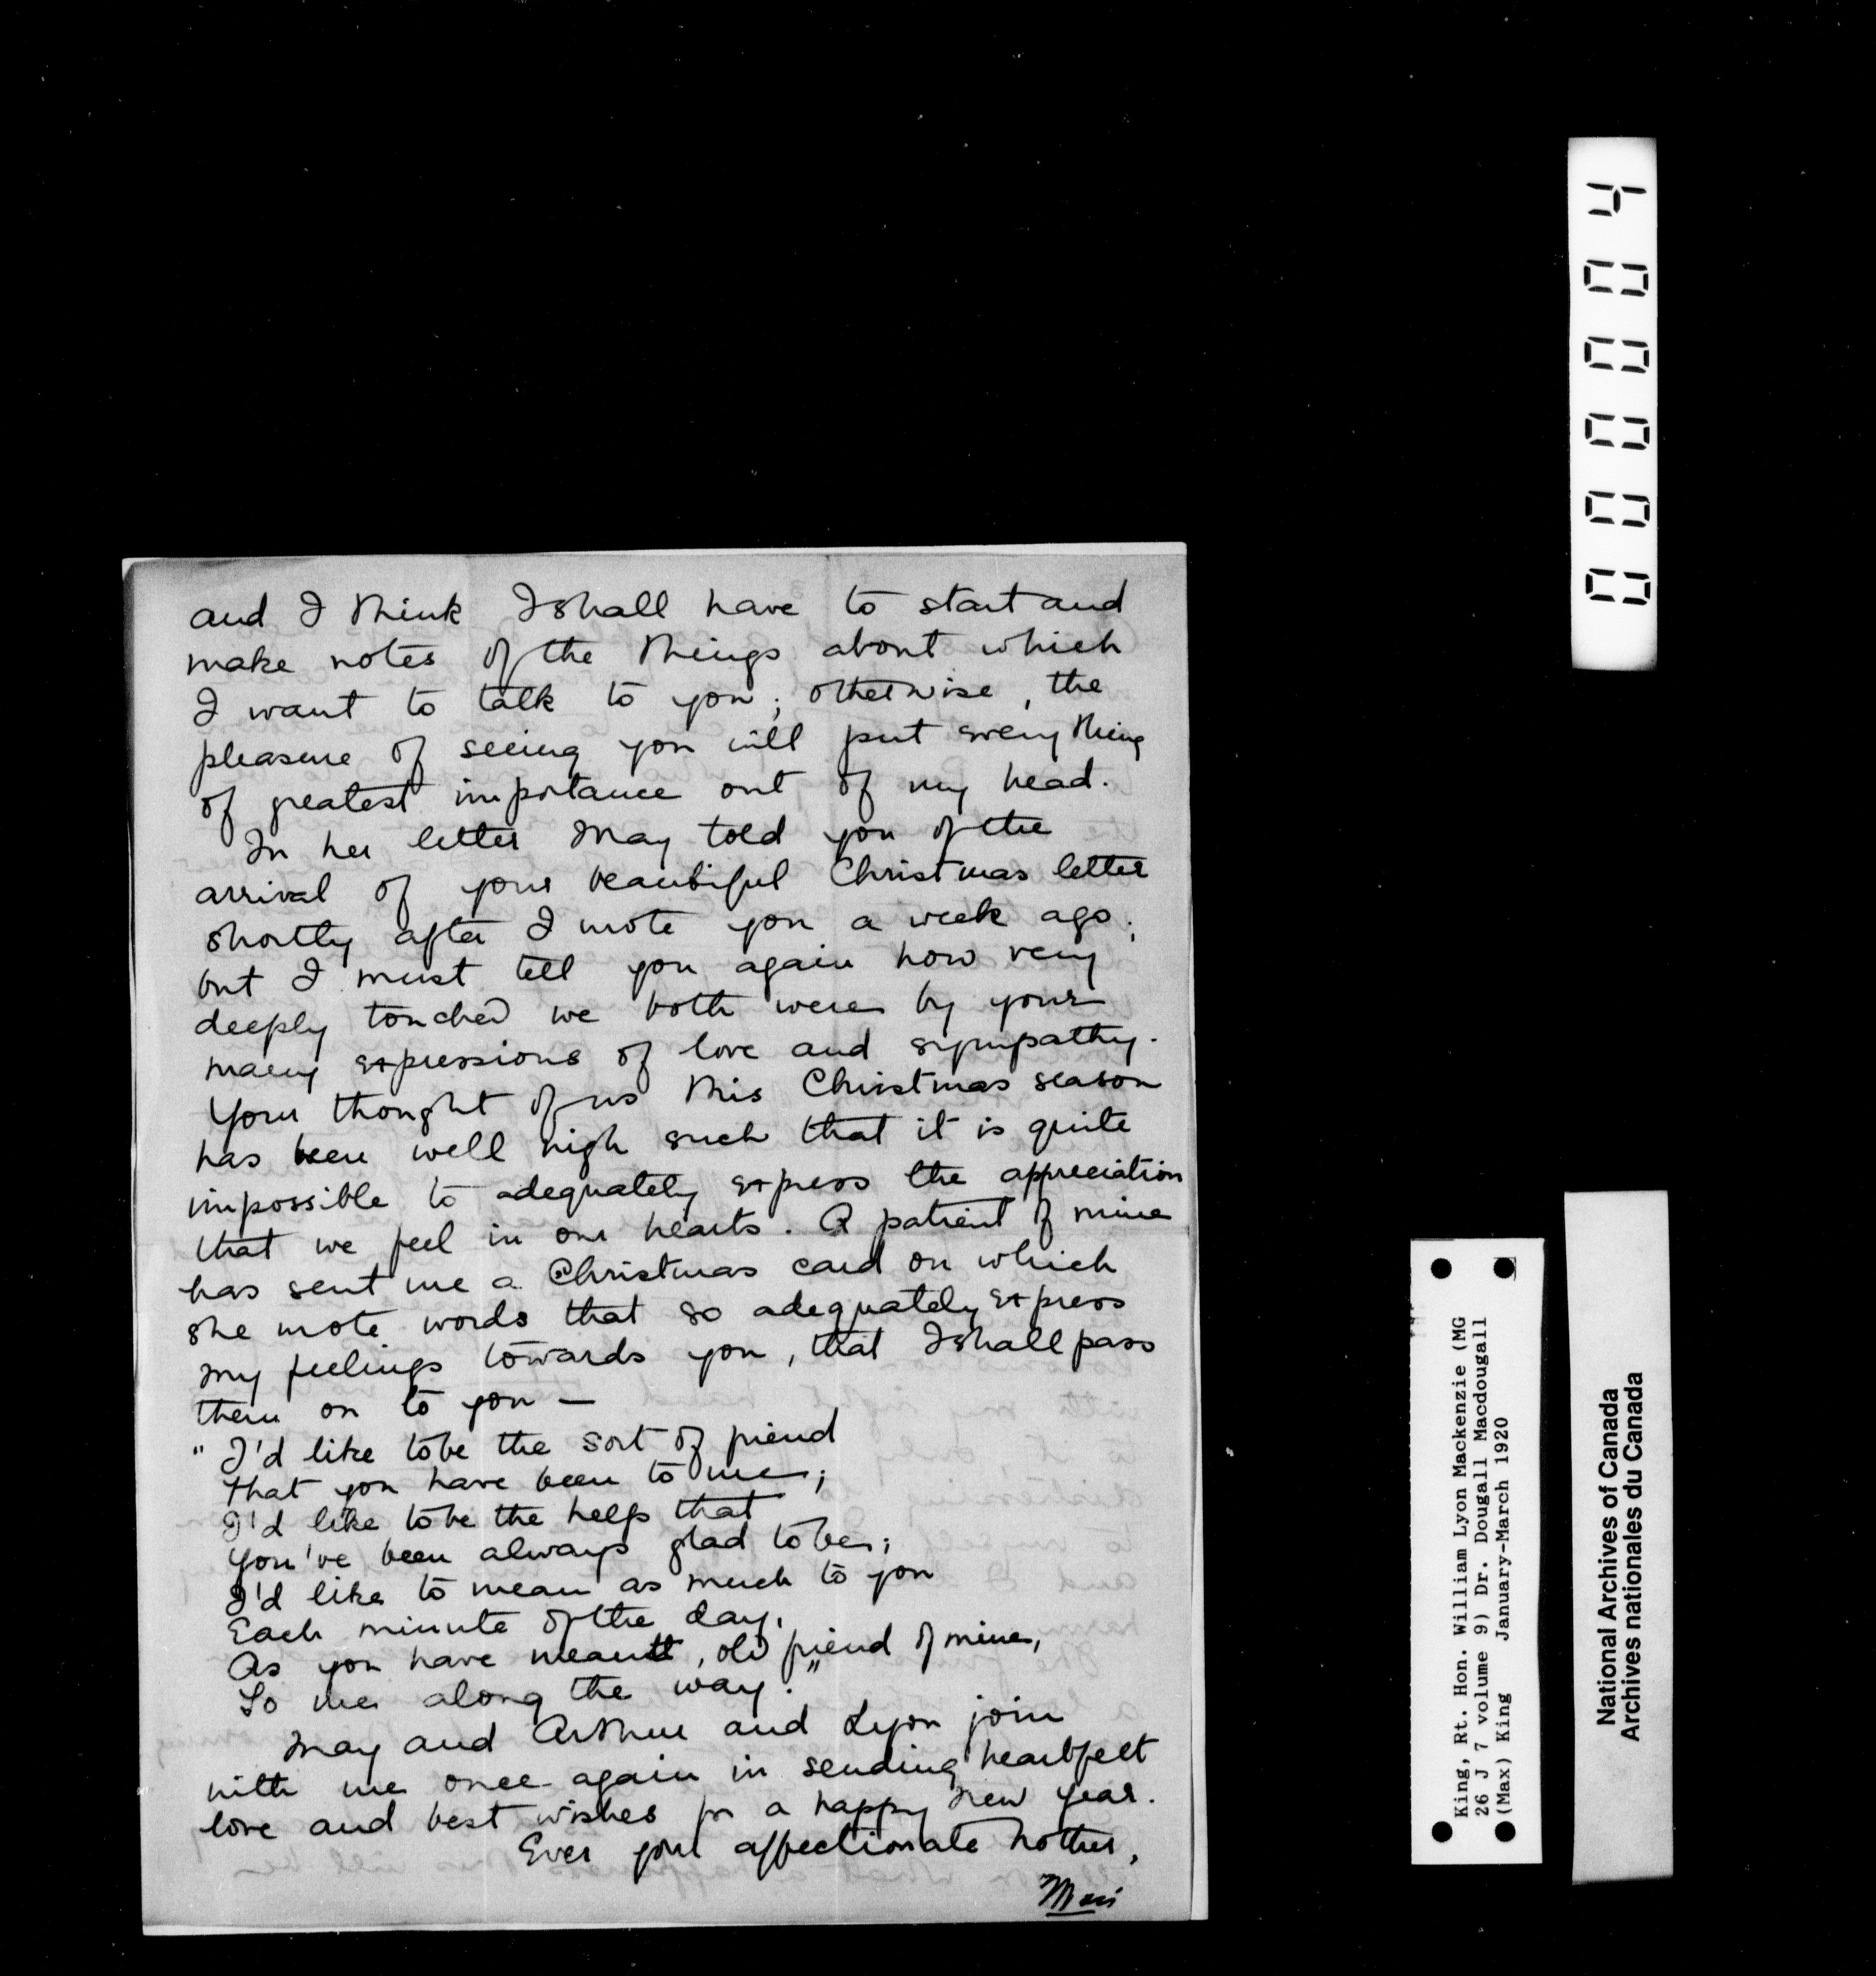 and I think I shall have to start and
make notes of the things about which
I want to talk to you; otherwise, the
pleasure of seeing you will put everything
of greatest importance out of my head.
In her letter May told you of the
arrival of your beautiful Christmas letter
shortly after I wrote you a week ago;
but I must tell you again how very
deeply touched we both were by your
many expressions of love and sympathy.
Your thought of us this Christmas season
has been well nigh such that it is quite
impossible to adequately express the appreciation
that we feel in our hearts. A patient of mine
has sent me a Christmas card on which
she wrote words that so adequately express
my feelings towards you, that I shall pass
them on to you —
" I'd like to be the sort of friend
that you have been to me;
I'd like to be the help that
you've been always glad to be;
I'd like to mean as much to you
Each minute of the day,
As you have meant, old friend of mine,
To me along the way."
May and Arthur and Lyon join
with me once again in sending heartfelt
love and best wishes for a happy New Year.
Ever your affectionate brother,
Max
000004
King, Rt. Hon. William Lyon Mackenzie (MG
26 J 7 volume 9) Dr. Dougall Macdougall
(Max) King January-March 1920
National Archives of Canada
Archives nationales du Canada